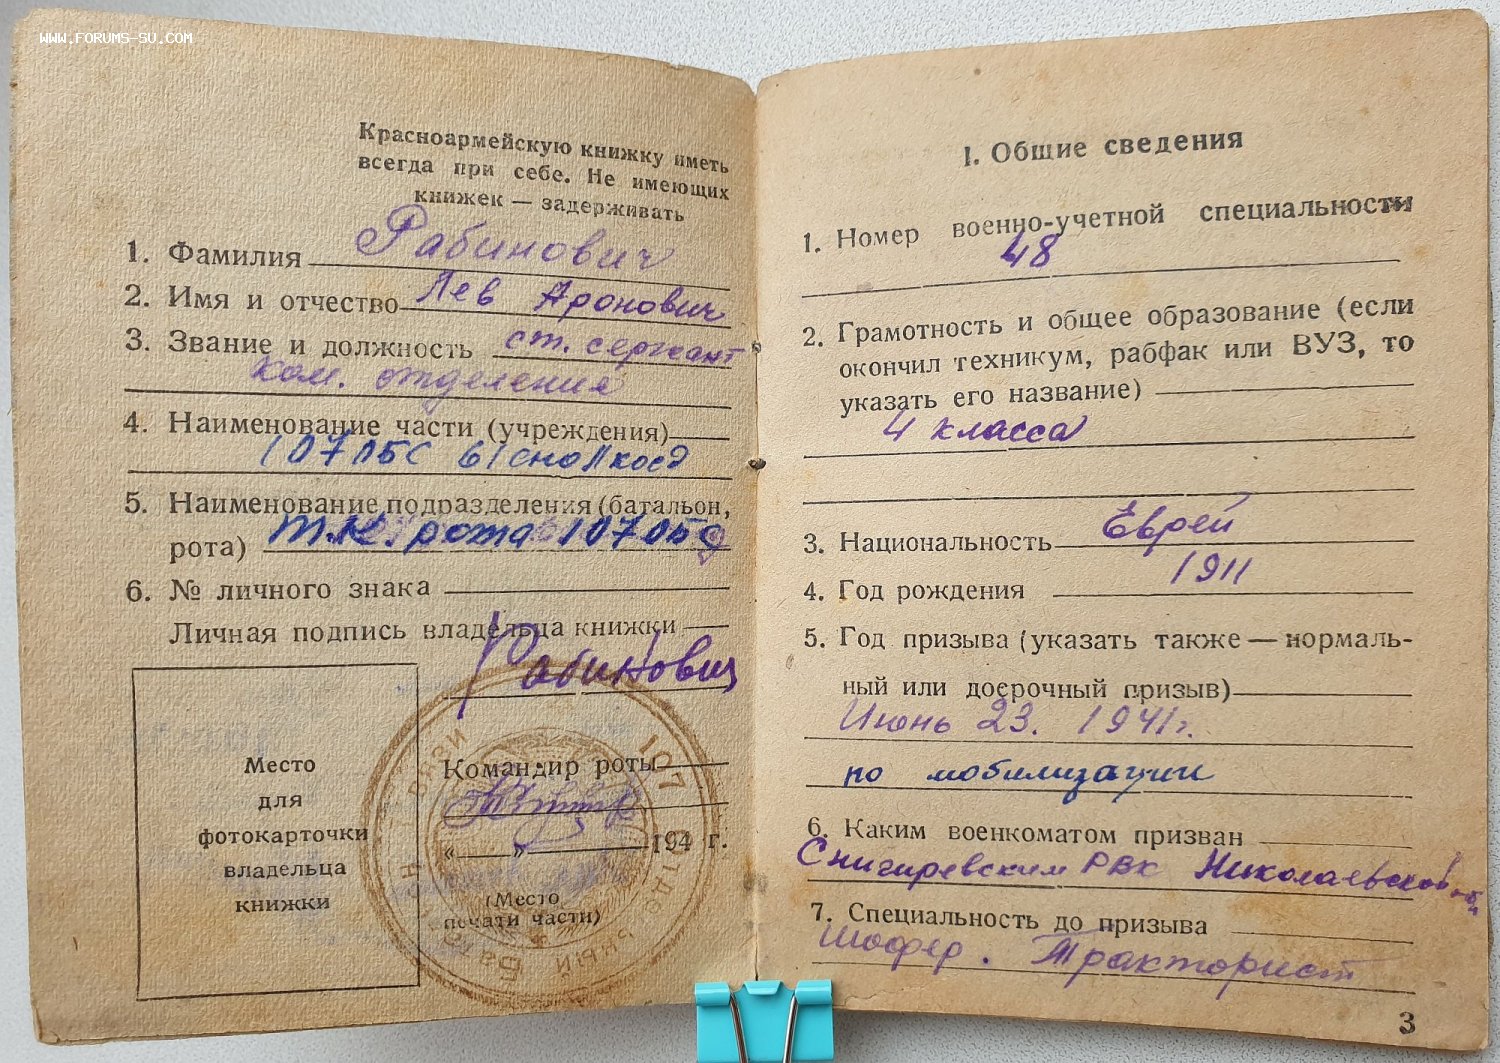 www.forums-su.com
Красноармейскую книжку иметь
всегда при себе. Не имеющих
книжек — задерживать
1. Фамилия Рабинович
2. Имя и отчество Лев Аронович
3. Звание и должность ст. сержант
Ком. отделения
4. Наименование части (учреждения)
107 ЛБС
5. Наименование подразделения (батальон,
рота) рота 107
6. № личного знака
Личная подпись владельца книжки
Рабинович
Место
для
фотокарточки
владельца
книжки
Командир роты
« » 194 г.
(Место
печати части)
107
связи
I. Общие сведения
1. Номер военно-учетной специальности
48
2. Грамотность и общее образование (если
окончил техникум, рабфак или ВУЗ, то
указать его название)
4 класса
3. Национальность Еврей
4. Год рождения 1911
5. Год призыва (указать также — нормаль-
ный или досрочный призыв)
Июнь 23. 1941г.
по мобилизации
6. Каким военкоматом призван
Снигиревским РВК Николаевской
7. Специальность до призыва
Шофер. Тракторист
3